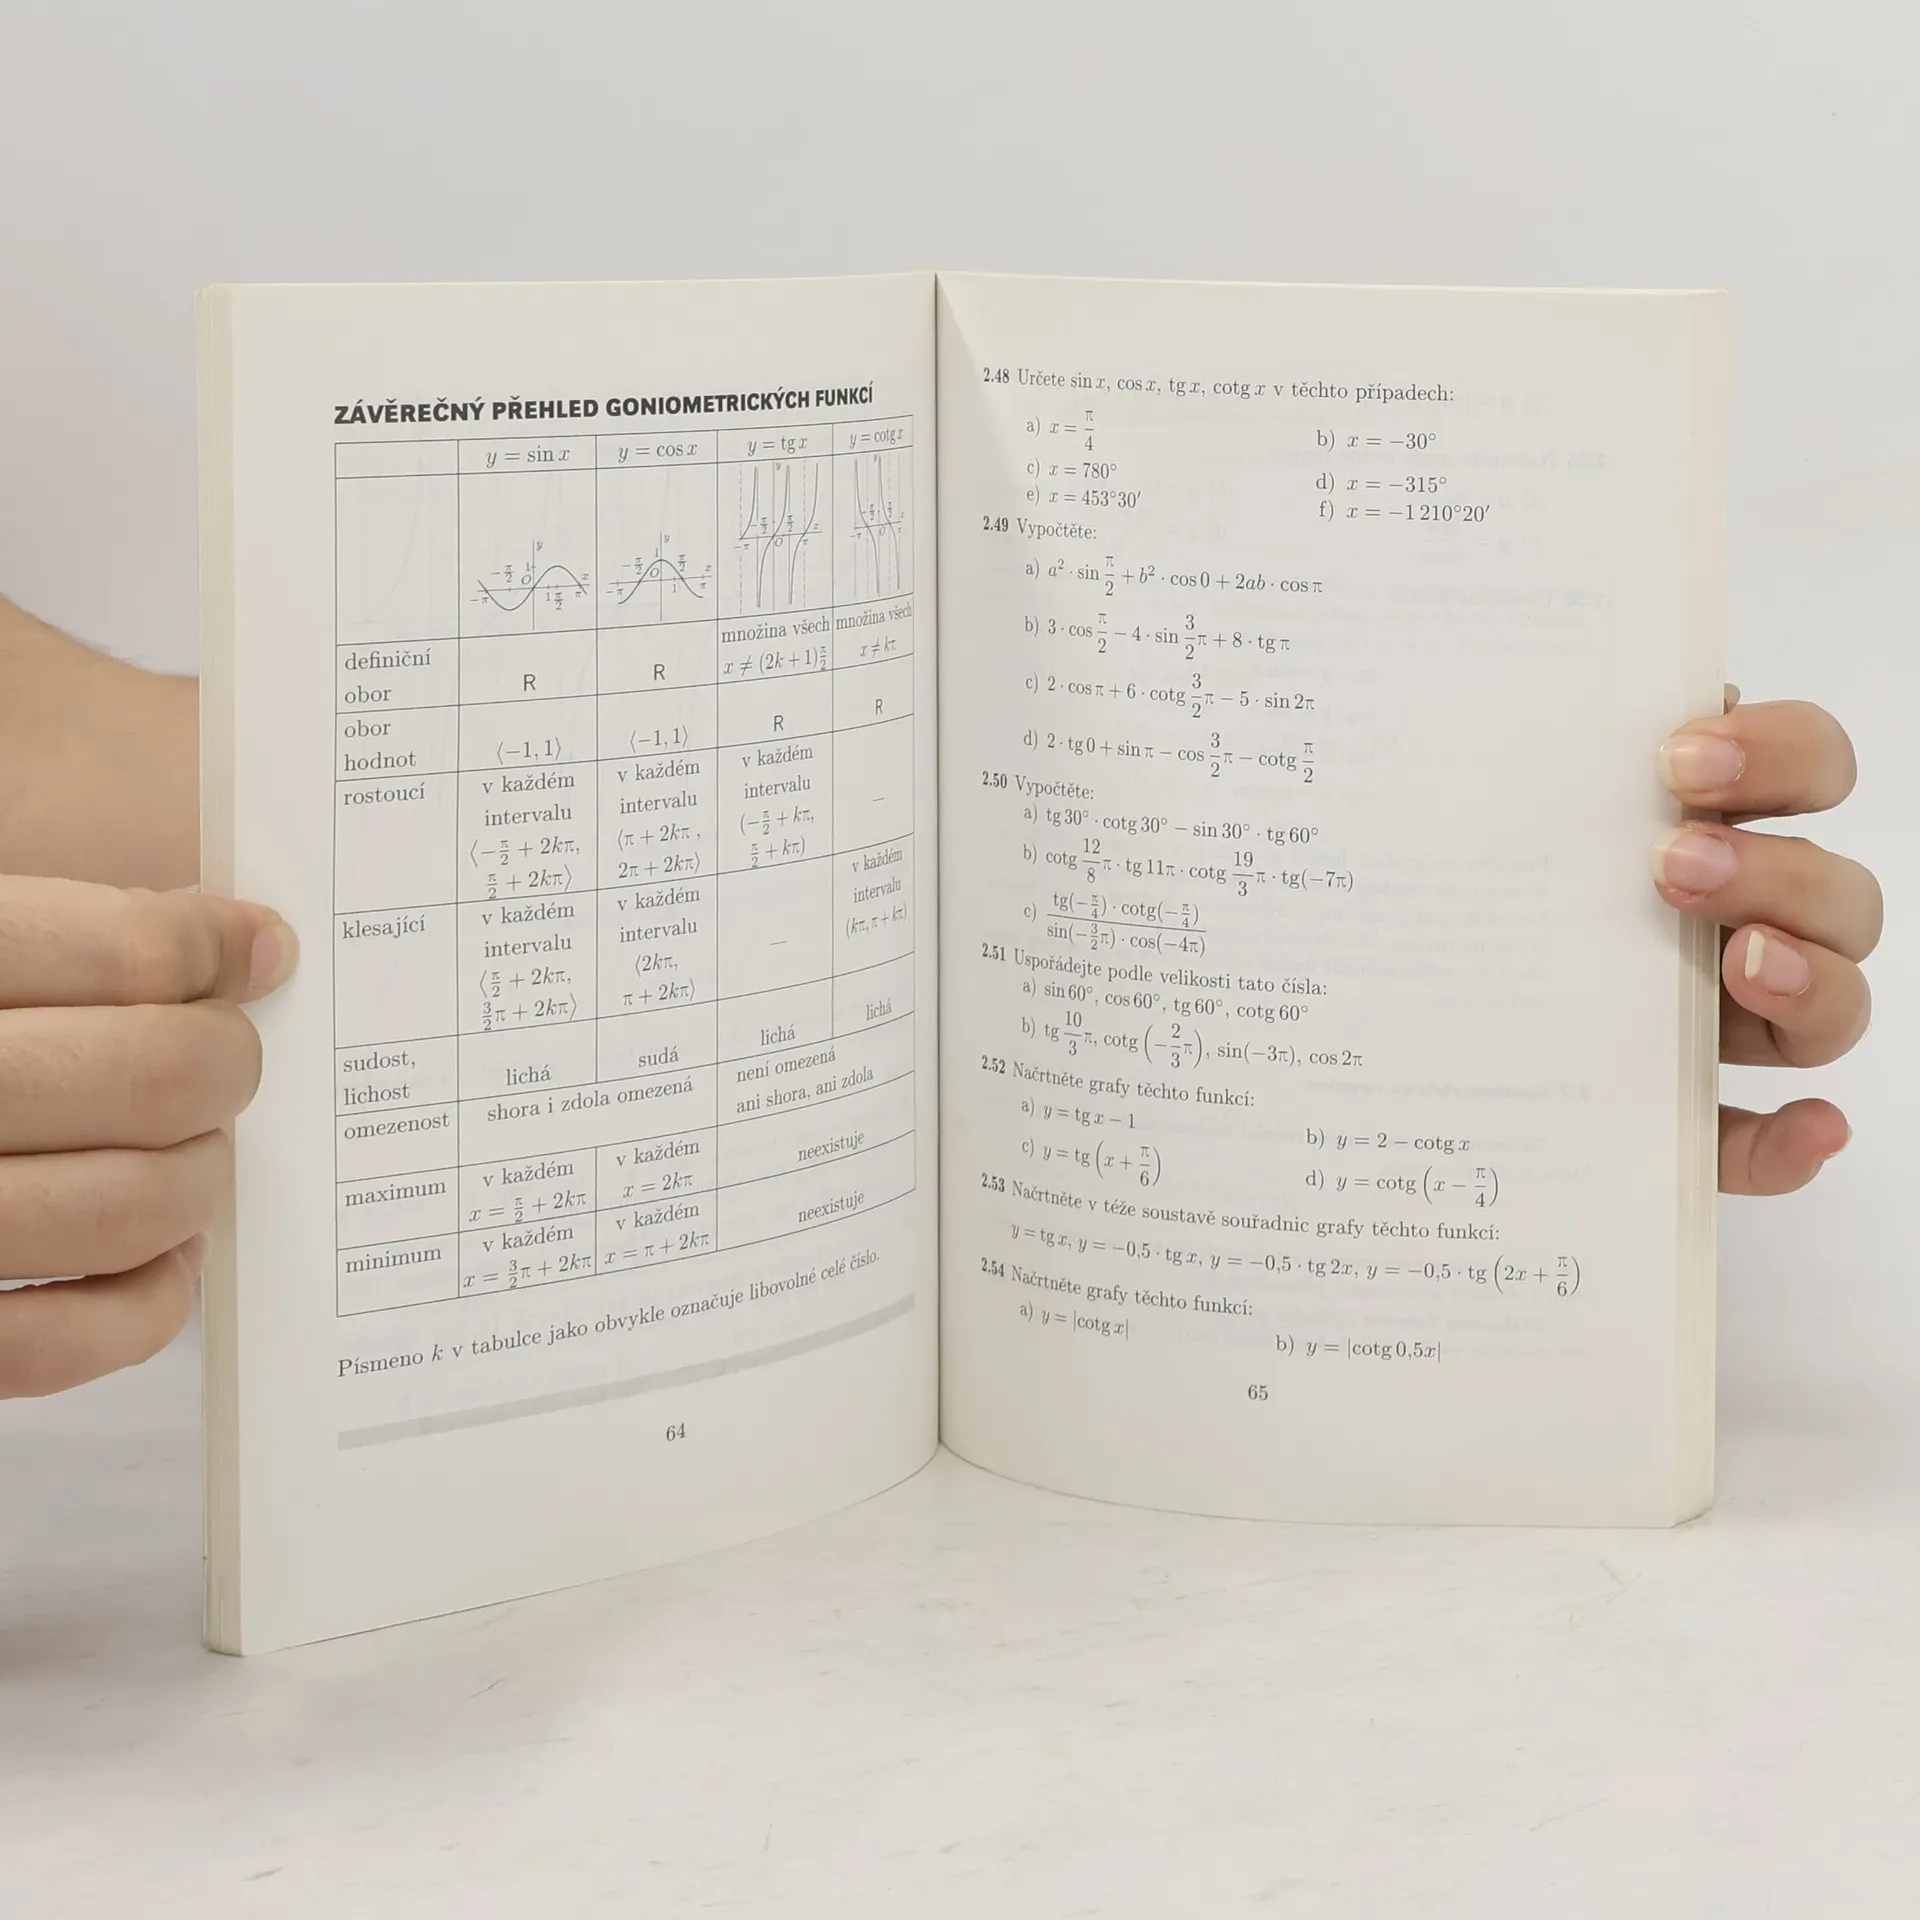 ZÁVĚREČNÝ PŘEHLED GONIOMETRICKÝCH FUNKCÍ
y = sin x y = cos x y = tg x y = cotg x
definiční obor R R množina všech x ≠ (2k + 1)π/2 množina všech x ≠ kπ
obor hodnot ⟨−1, 1⟩ ⟨−1, 1⟩ R R
rostoucí v každém intervalu ⟨−π/2 + 2kπ, π/2 + 2kπ⟩ v každém intervalu ⟨π + 2kπ, 2π + 2kπ⟩ v každém intervalu (−π/2 + kπ, π/2 + kπ) —
klesající v každém intervalu ⟨π/2 + 2kπ, 3/2π + 2kπ⟩ v každém intervalu ⟨2kπ, π + 2kπ⟩ — v každém intervalu (kπ, π + kπ)
sudost, lichost lichá sudá lichá lichá
omezenost shora i zdola omezená není omezená ani shora, ani zdola
maximum v každém x = π/2 + 2kπ v každém x = 2kπ neexistuje
minimum v každém x = 3/2π + 2kπ v každém x = π + 2kπ neexistuje
Písmeno k v tabulce jako obvykle označuje libovolné celé číslo.
64
2.48 Určete sin x, cos x, tg x, cotg x v těchto případech:
a) x = π/4 b) x = −30°
c) x = 780° d) x = −315°
e) x = 453°30′ f) x = −1 210°20′
2.49 Vypočtěte:
a) a² · sin π/2 + b² · cos 0 + 2ab · cos π
b) 3 · cos π/2 − 4 · sin 3/2π + 8 · tg π
c) 2 · cos π + 6 · cotg 3/2π − 5 · sin 2π
d) 2 · tg 0 + sin π − cos 3/2π − cotg π/2
2.50 Vypočtěte:
a) tg 30° · cotg 30° − sin 30° · tg 60°
b) cotg 12/8π · tg 11π · cotg 19/3π · tg(−7π)
c) tg(−π/4) · cotg(−π/4) / sin(−3/2π) · cos(−4π)
2.51 Uspořádejte podle velikosti tato čísla:
a) sin 60°, cos 60°, tg 60°, cotg 60°
b) tg 10/3π, cotg (−2/3π), sin(−3π), cos 2π
2.52 Načrtněte grafy těchto funkcí:
a) y = tg x − 1 b) y = 2 − cotg x
c) y = tg (x + π/6) d) y = cotg (x − π/4)
2.53 Načrtněte v téže soustavě souřadnic grafy těchto funkcí:
y = tg x, y = −0,5 · tg x, y = −0,5 · tg 2x, y = −0,5 · tg (2x + π/6)
2.54 Načrtněte grafy těchto funkcí:
a) y = |cotg x| b) y = |cotg 0,5x|
65